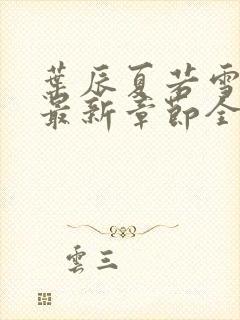 葉辰夏若雪
最新章節全
雲三